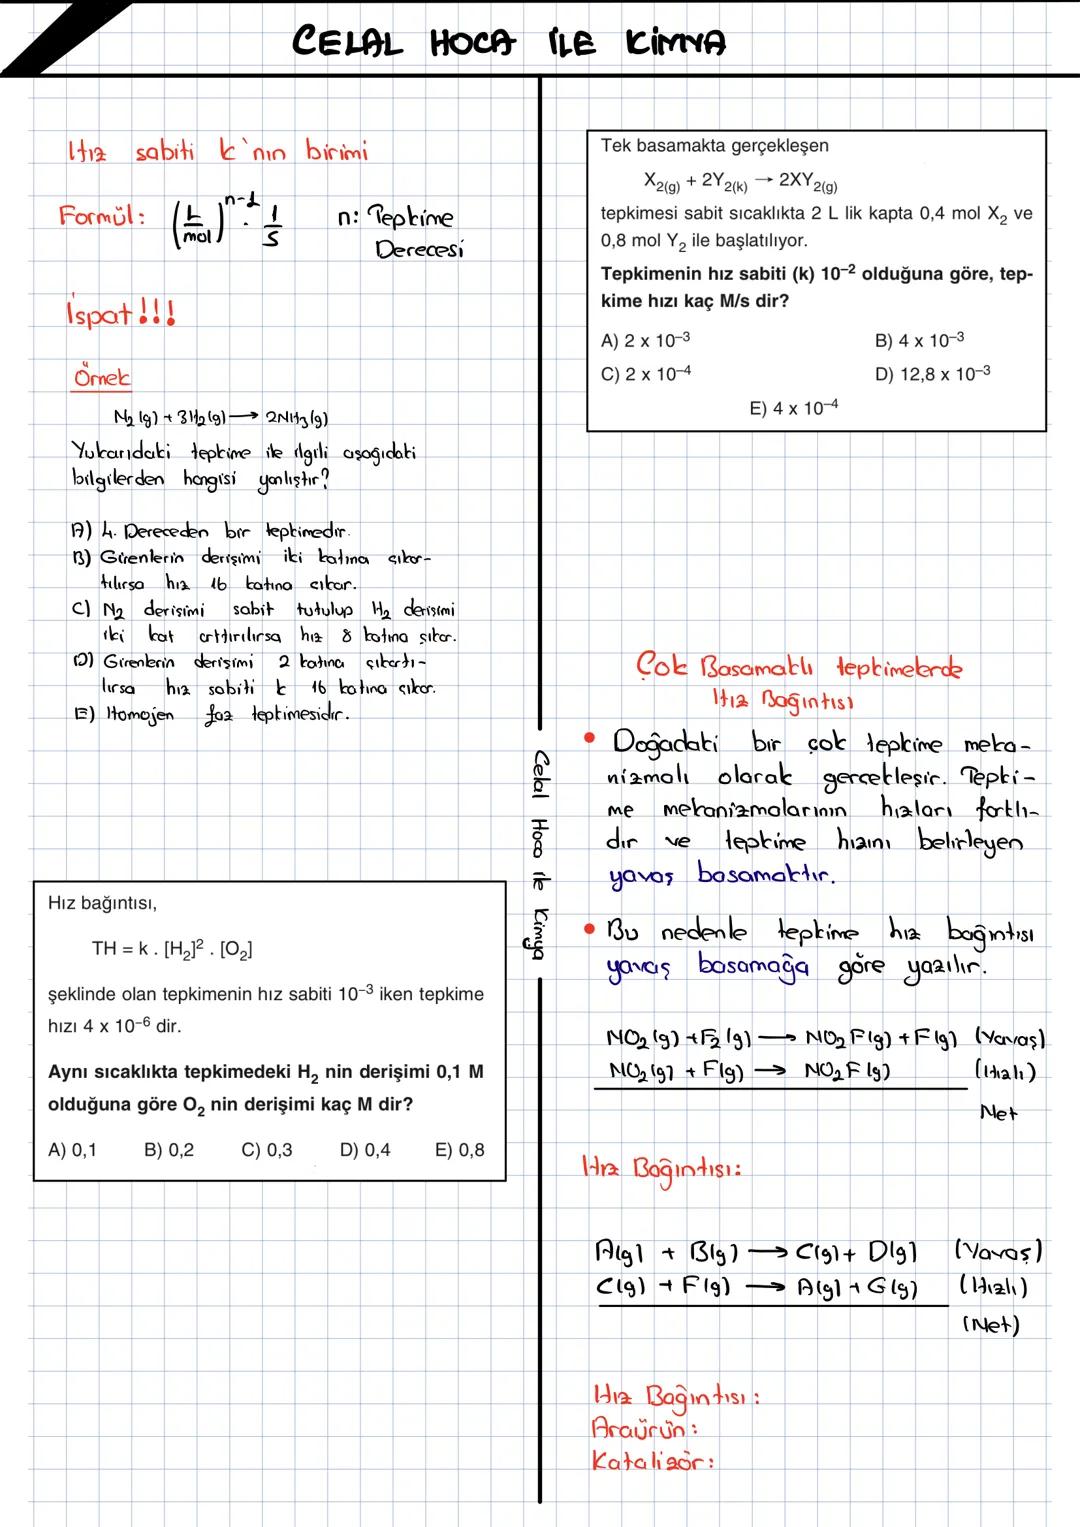 CELAL HOCA İLE KİMYA
Hız sabiti k'nın birimi
Formül: (L/mol)ⁿ⁻¹ · 1/s n: Tepkime
Derecesi
İspat!!!
Örnek
N₂(g) + 3H₂(g) → 2NH₃(g)
Yukarıdaki tepkime ile ilgili aşağıdaki
bilgilerden hangisi yanlıştır?
A) 4. Dereceden bir tepkimedir.
B) Girenlerin derişimi iki katına çıkar-
tılırsa hız 16 katına çıkar.
C) N₂ derişimi sabit tutulup H₂ derişimi
iki kat arttırılırsa hız 8 katına çıkar.
D) Girenlerin derişimi 2 katına çıkartı-
lırsa hız sabiti k 16 katına çıkar.
E) Homojen faz tepkimesidir.
Hız bağıntısı,
TH = k . [H₂]² . [O₂]
şeklinde olan tepkimenin hız sabiti 10⁻³ iken tepkime
hızı 4 x 10⁻⁶ dir.
Aynı sıcaklıkta tepkimedeki H₂ nin derişimi 0,1 M
olduğuna göre O₂ nin derişimi kaç M dir?
A) 0,1 B) 0,2 C) 0,3 D) 0,4 E) 0,8
Celal Hoca ile Kimya
Tek basamakta gerçekleşen
X₂(g) + 2Y₂(k) → 2XY₂(g)
tepkimesi sabit sıcaklıkta 2 L lik kapta 0,4 mol X₂ ve
0,8 mol Y₂ ile başlatılıyor.
Tepkimenin hız sabiti (k) 10⁻² olduğuna göre, tep-
kime hızı kaç M/s dir?
A) 2 x 10⁻³ B) 4 x 10⁻³
C) 2 x 10⁻⁴ D) 12,8 x 10⁻³
E) 4 x 10⁻⁴
Çok Basamaklı tepkimelerde
Hız Bağıntısı
• Doğadaki bir çok tepkime meka-
nizmalı olarak gerçekleşir. Tepki-
me mekanizmalarının hızları farklı-
dır ve tepkime hızını belirleyen
yavaş basamaktır.
• Bu nedenle tepkime hız bağıntısı
yavaş basamağa göre yazılır.
NO₂(g) + F₂(g) → NO₂F(g) + F(g) (Yavaş)
NO₂(g) + F(g) → NO₂F(g) (Hızlı)
Net
Hız Bağıntısı:
A(g) + B(g) → C(g) + D(g) (Yavaş)
C(g) + F(g) → A(g) + G(g) (Hızlı)
(Net)
Hız Bağıntısı:
Araürün:
Katalizör: